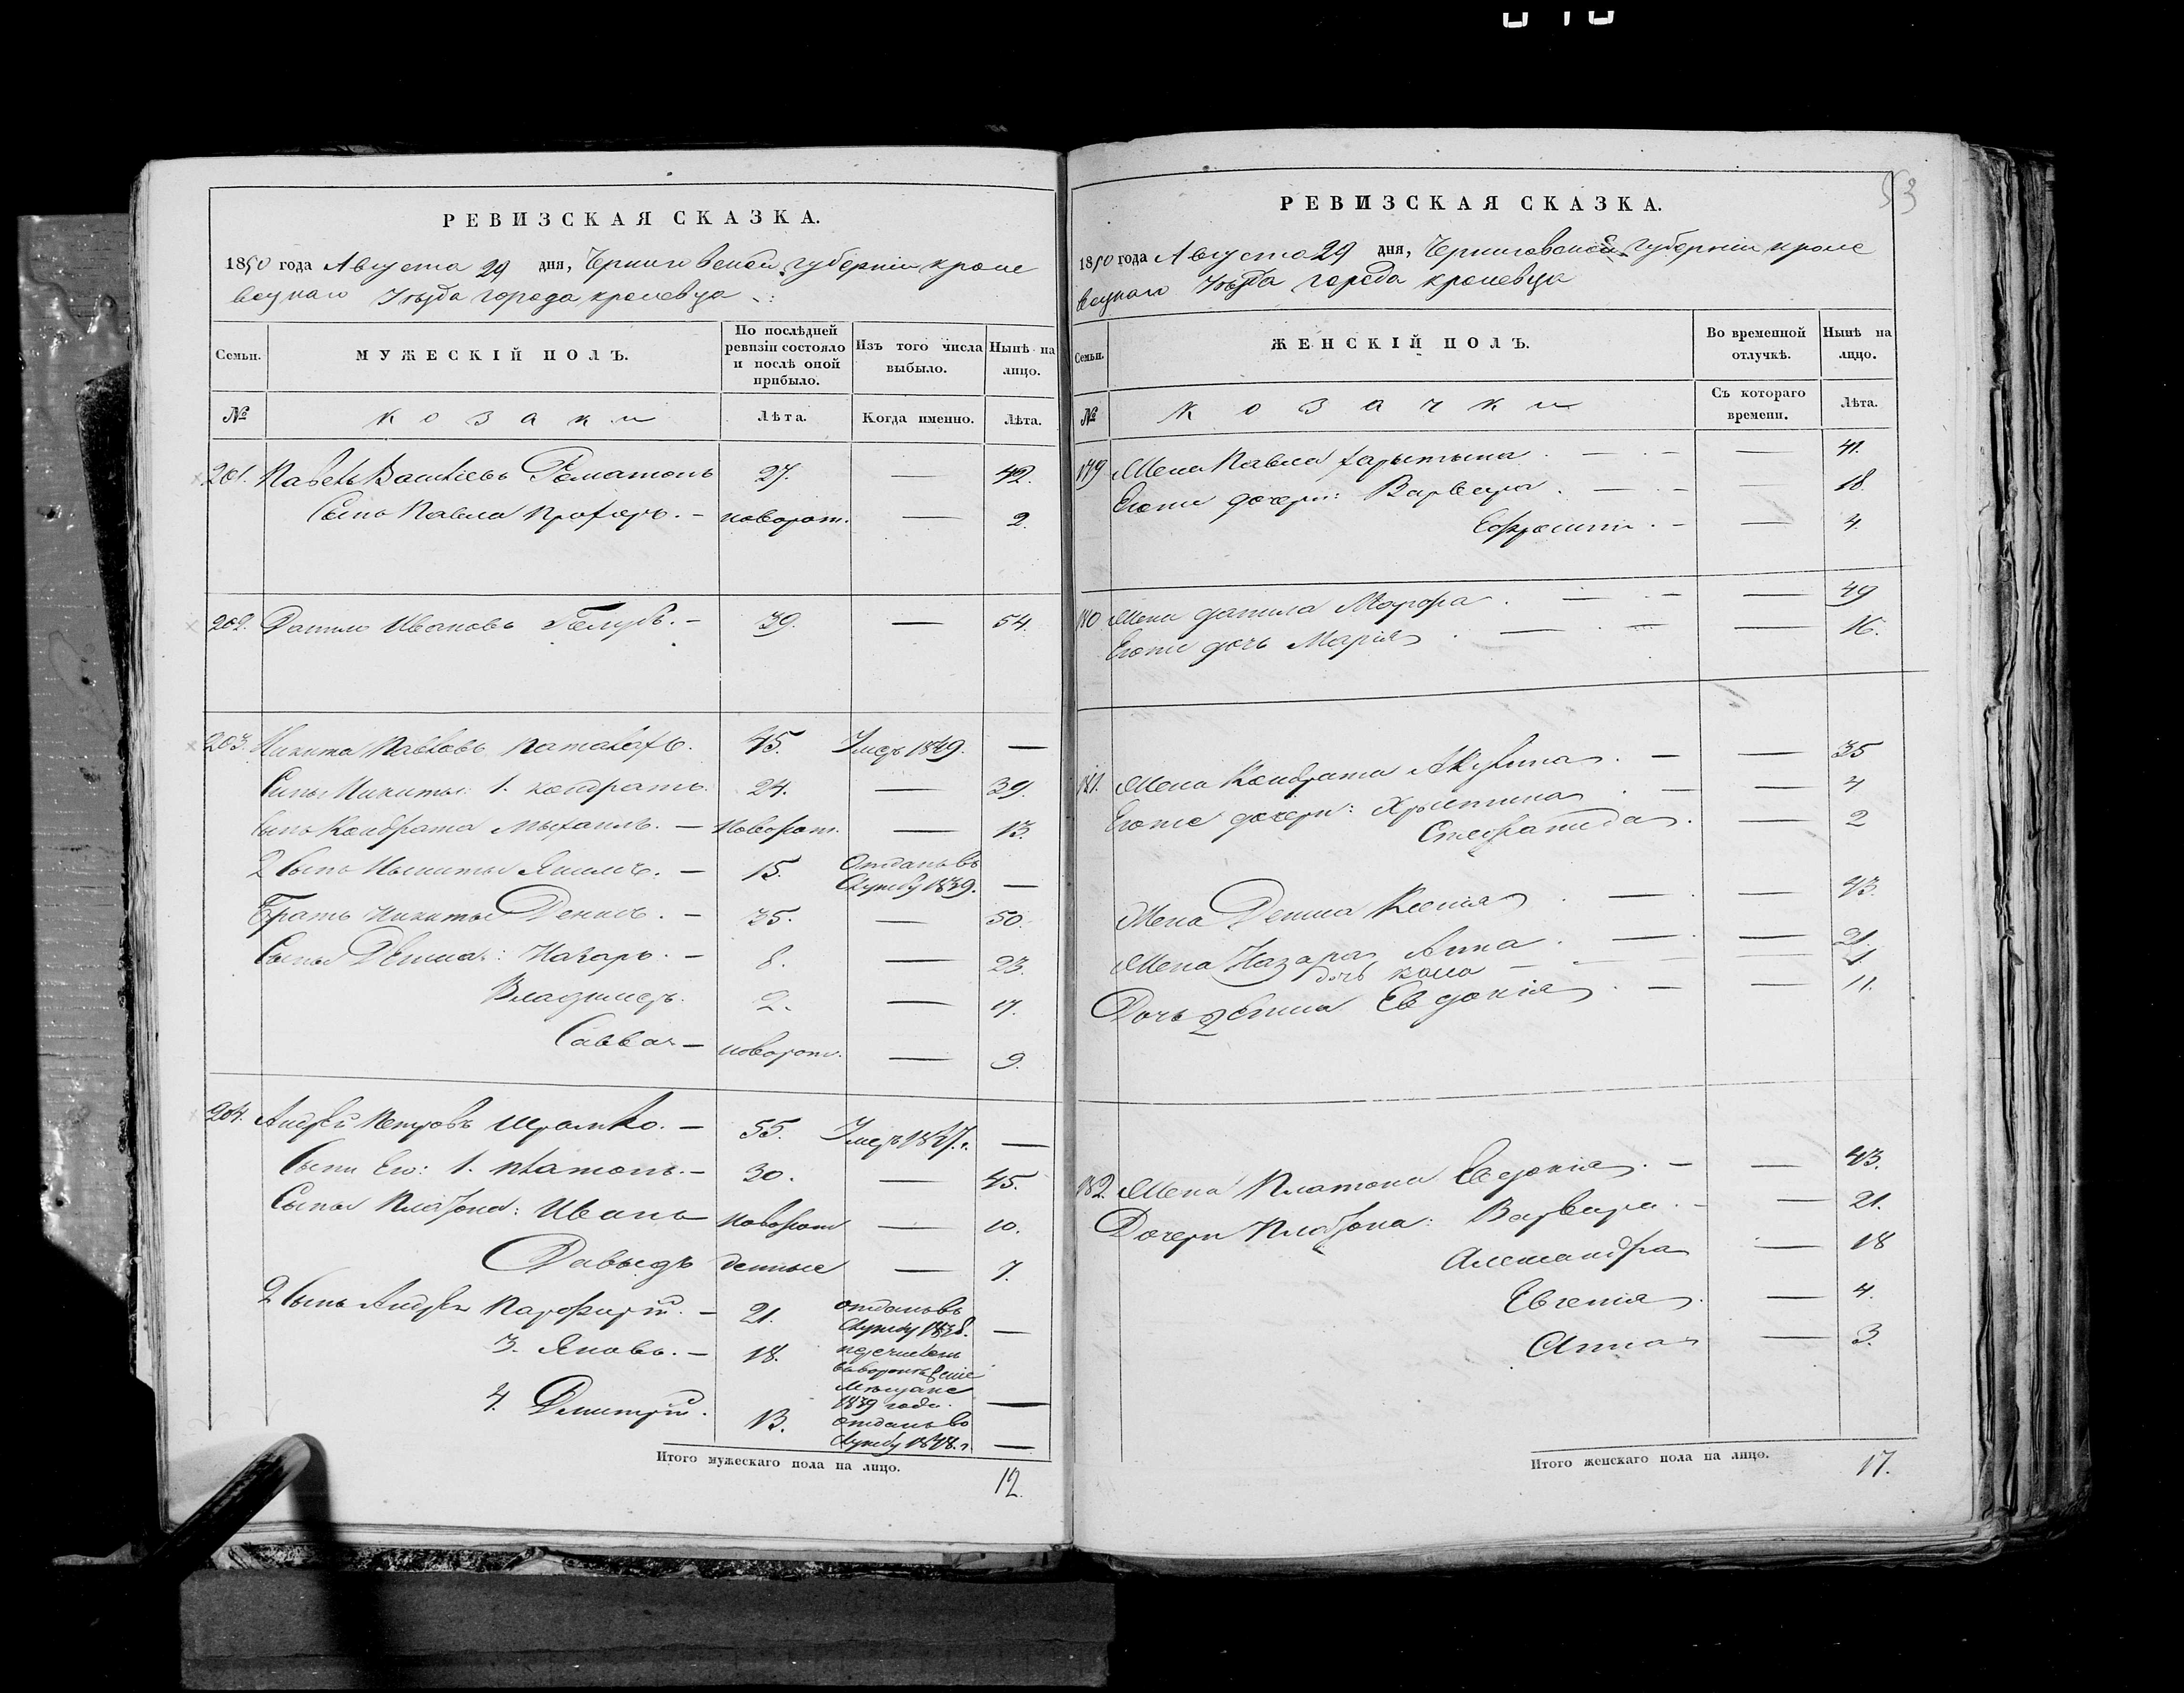 РЕВИЗСКАЯ СКАЗКА.
1850 года Августа 29 дня, Черниговской губерніи кроле
вецкаго Уѣзда города кролевца
Семьи.
МУЖЕСКІЙ ПОЛЪ.
По послѣдней ревизіи состояло и послѣ оной прибыло.
Изъ того числа выбыло.
Нынѣ на лицо.
№
козаки
Лѣта.
Когда именно.
Лѣта.
201. Павелъ Васильевъ 27. — 42.
Сынъ Павла Прохоръ. — новорож. — 2.
202. Данило Ивановъ Голубъ. — 39. — 54.
203. Никита Павловъ 45. Умеръ 1849. —
Сыны Никиты: 1. кондратъ. 24. — 39.
Сынъ Кондрата Мыхаилъ. — Новорож. — 13.
2 Сынъ Ныкиты Якимъ. — 15. Отданъ въ Службу 1839. —
Братъ Никиты Денисъ. — 35. — 50.
Сыны Дениса: Назаръ. — 8. — 23.
Владимеръ. 2. — 17.
Савва — новорож. — 9.
204. Андрей Петровъ Шрамко. — 55. Умеръ 1847. г. —
Сыны Его: 1. Платонъ. — 30. — 45.
Сыны Платона: Иванъ Новорож — 10.
Давыдъ денные — 7.
2 Сынъ Андрея Парфирій. — 21. отданъ въ Службу 1838. —
3. Яковъ. — 18. перечисленъ Мещане 1839 года. —
4. Дмитрій. 13. отданъ во Службу 1848. г. —
Итого мужескаго пола на лицо.
12.
53
РЕВИЗСКАЯ СКАЗКА.
1850 года Августа 29 дня, Черниговской Губерніи кроле
вецкаго Уѣзда города кролевца
Семьи.
ЖЕНСКІЙ ПОЛЪ.
Во временной отлучкѣ.
Нынѣ на лицо.
№
козачки
Съ котораго времени.
Лѣта.
179 Жена Павла Харытына . — . — — 41.
Егоже дочери: Варвара . — . — — 18.
Ефросинія . — — 4.
180 Жена данила Марфа . — . — — 49
Егоже дочь Марія . — . — — 16.
181. Жена Кондрата Акулина . — — 35
Егоже дочери: Хрыстина . — — 4
Стефанида . — 2
Жена Дениса Ксенія . — . — 43.
Жена Назара Анна . — . — 21.
дочь — — — 1.
Дочь Дениса Евдокія . — — 11.
182. Жена Платона Евдокія . — — 43.
Дочери Платона: Варвара . — — 21.
Александра — 18
Евгенія . — 4.
Анна — 3.
Итого женскаго пола на лицо.
17.